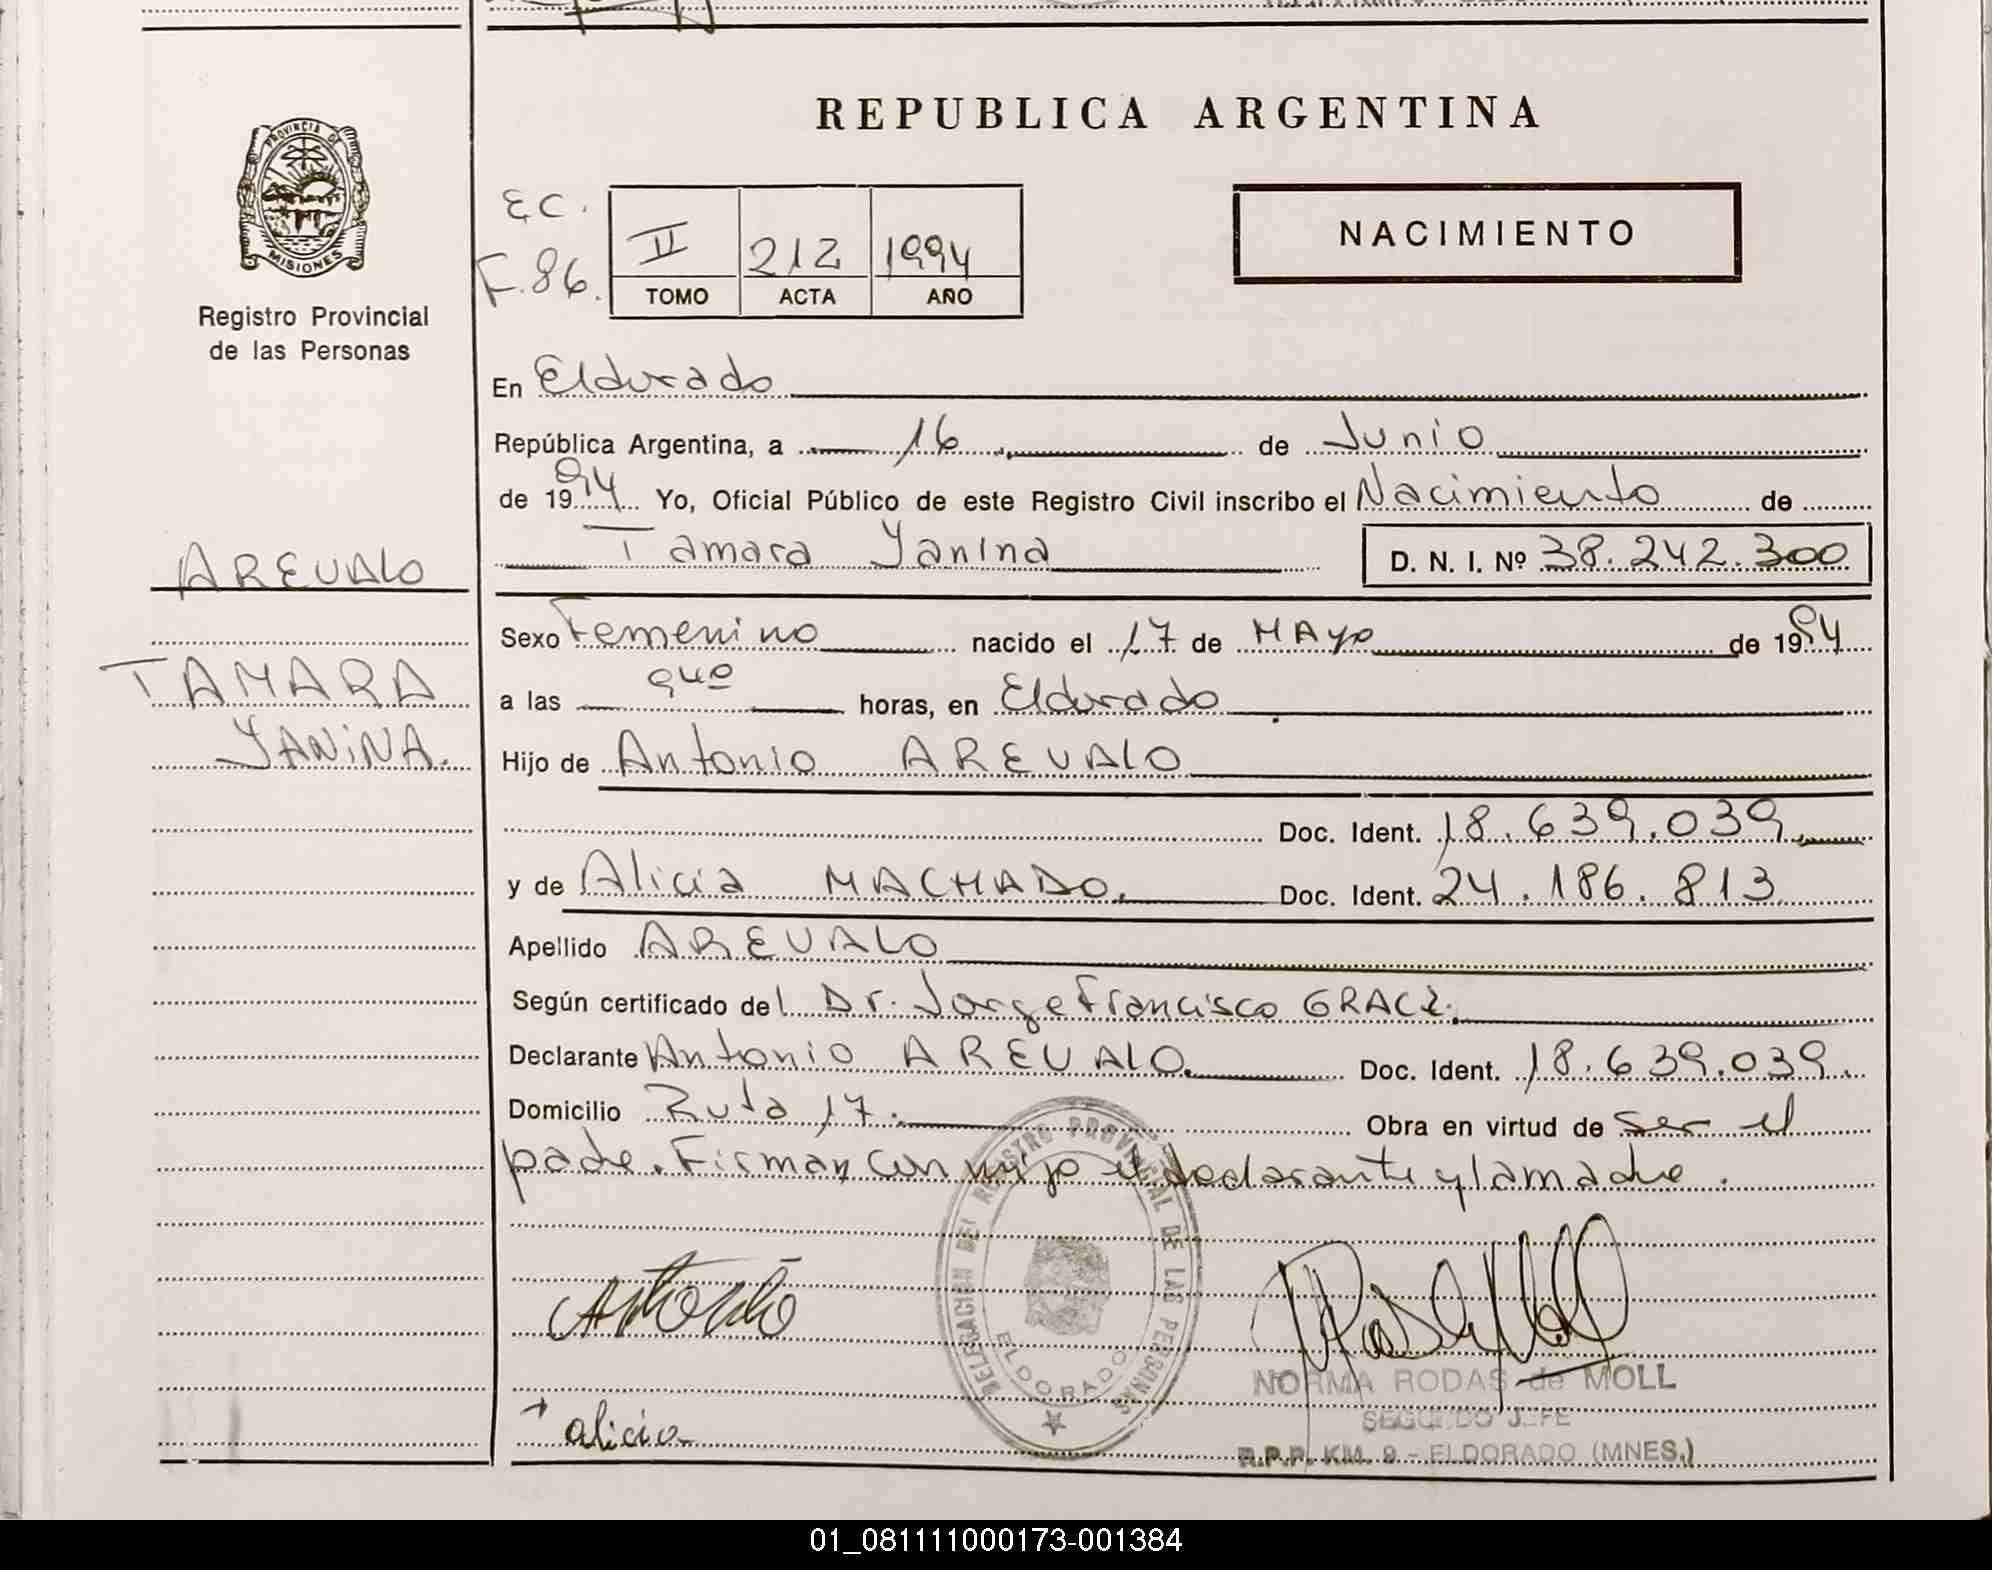 REPUBLICA ARGENTINA
PROVINCIA DE
MISIONES
Registro Provincial
de las Personas
EC.
F.86.
II 212 1994
TOMO ACTA AÑO
NACIMIENTO
En Eldorado
República Argentina, a 16 de Junio
de 1994 Yo, Oficial Público de este Registro Civil inscribo el Nacimiento de
Tamara Yanina D. N. I. Nº 38.242.300
AREVALO
TAMARA
YANINA.
Sexo Femenino nacido el 17 de MAyo de 1994
a las 940 horas, en Eldorado
Hijo de Antonio AREVALO
Doc. Ident. 18.639.039.
y de Alicia MACHADO. Doc. Ident. 24.186.813
Apellido AREVALO
Según certificado del Dr. Jorge Francisco
Declarante Antonio AREVALO. Doc. Ident. 18.639.039.
Domicilio Ruta 17. Obra en virtud de ser el
padre. Firman con migo el declarante y la madre.
DELEGACION DEL REGISTRO PROVINCIAL DE LAS PERSONAS
ELDORADO
Antonio
NORMA RODAS de MOLL
SEGUNDO JEFE
R.P.P. KM. 9 - ELDORADO (MNES.)
alicia
01_081111000173-001384